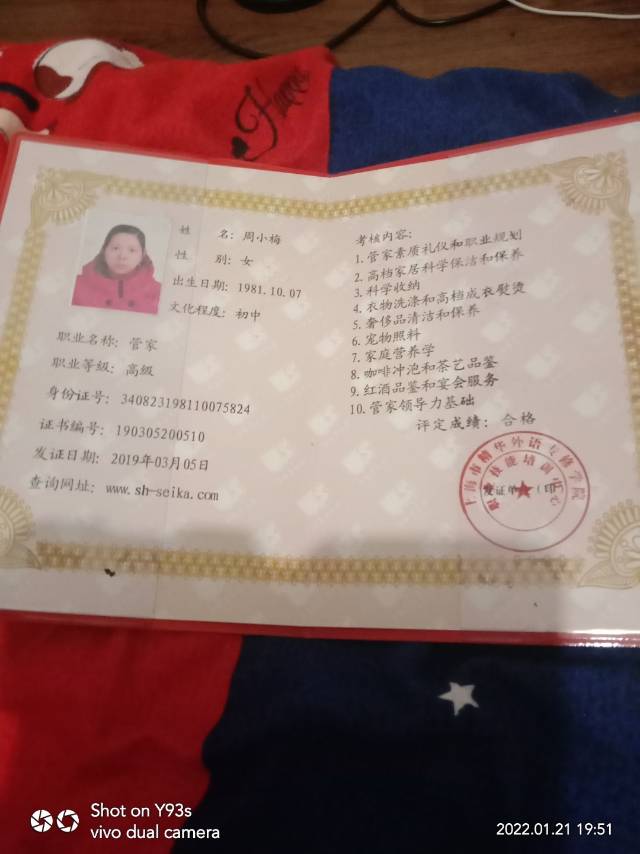 Happy
姓 名：周小梅
性 别：女
出生日期：1981.10.07
文化程度：初中
职业名称：管家
职业等级：高级
身份证号：340823198110075824
证书编号：190305200510
发证日期：2019年03月05日
查询网址：www.sh-seika.com
考核内容：
1. 管家素质礼仪和职业规划
2. 高档家居科学保洁和保养
3. 科学收纳
4. 衣物洗涤和高档成衣熨烫
5. 奢侈品清洁和保养
6. 宠物照料
7. 家庭营养学
8. 咖啡冲泡和茶艺品鉴
9. 红酒品鉴和宴会服务
10. 管家领导力基础
评定成绩：合格
上海市精华外语专修学院
职业技能培训中心
发证单 （印
Shot on Y93s
vivo dual camera
2022.01.21 19:51